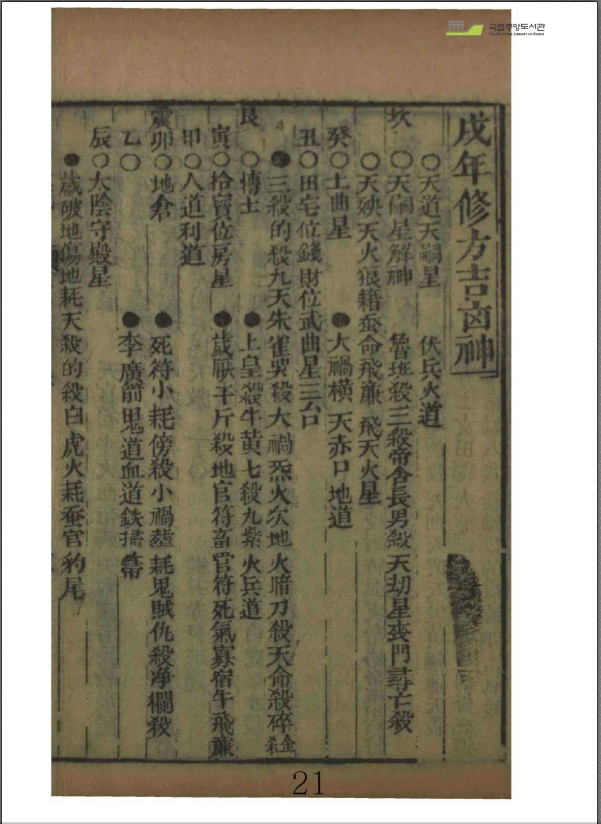 국립중앙도서관
THE NATIONAL LIBRARY OF KOREA
戌年修方吉凶神
○天道天嗣星 伏兵火道
坎 ○天嗣星解神 魯班殺三殺帝舍長男殺天刧星喪門尋亡殺
○天殃天火狼籍蚕命飛廉 飛天火星
癸○土曲星 ●大禍橫天赤口地道
丑○田宅位錢財位武曲星三台
●三殺的殺九天朱雀 殺大禍 火欠地火暗刀殺天命殺碎金殺
艮 ○博士 ●上皇殺牛黃七殺九紫火兵道
寅○拾寳位房星 ●歲厭千斤殺地官符畜官符死氣寡宿牛飛廉
甲○人道利道
震卯○地倉 ●死符小耗傍殺小禍 耗鬼賊仇殺净欄殺
乙○ ●李廣箭鬼道血道鉄掃帚
辰○太陰守殿星
●歲破地傷地耗天殺的殺白虎火耗蚕官豹尾
21